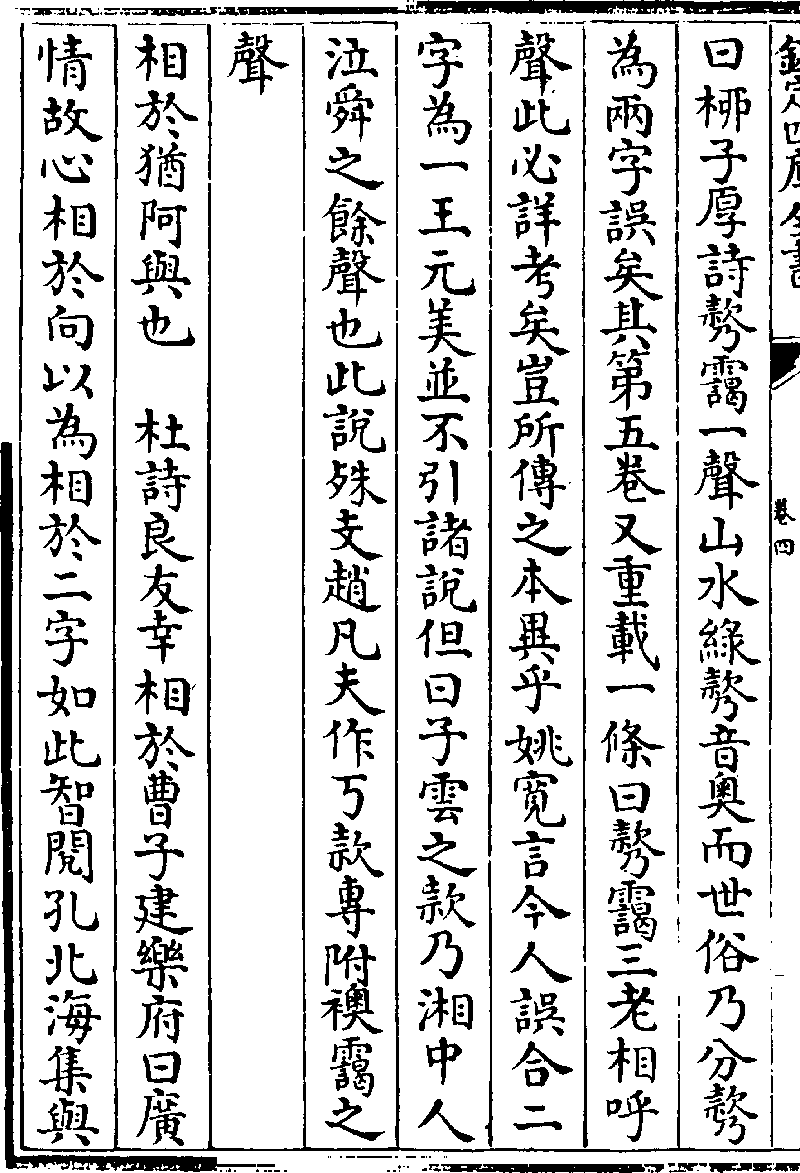 欽定四庫全書
卷四
曰栁子厚詩㢡靄一聲山水綠㢡音奧而世俗乃分㢡
為兩字誤矣其第五卷又重載一條曰㢡靄三老相呼
聲此必詳考矣豈所傳之本異乎姚寛言今人誤合二
字為一王元美並不引諸說但曰子雲之款乃湘中人
泣舜之餘聲也此說殊支趙凡夫作丂款專附襖靄之
聲
相於猶阿與也　杜詩良友幸相於曹子建樂府曰廣
情故心相於向以為相於二字如此智閱孔北海集與